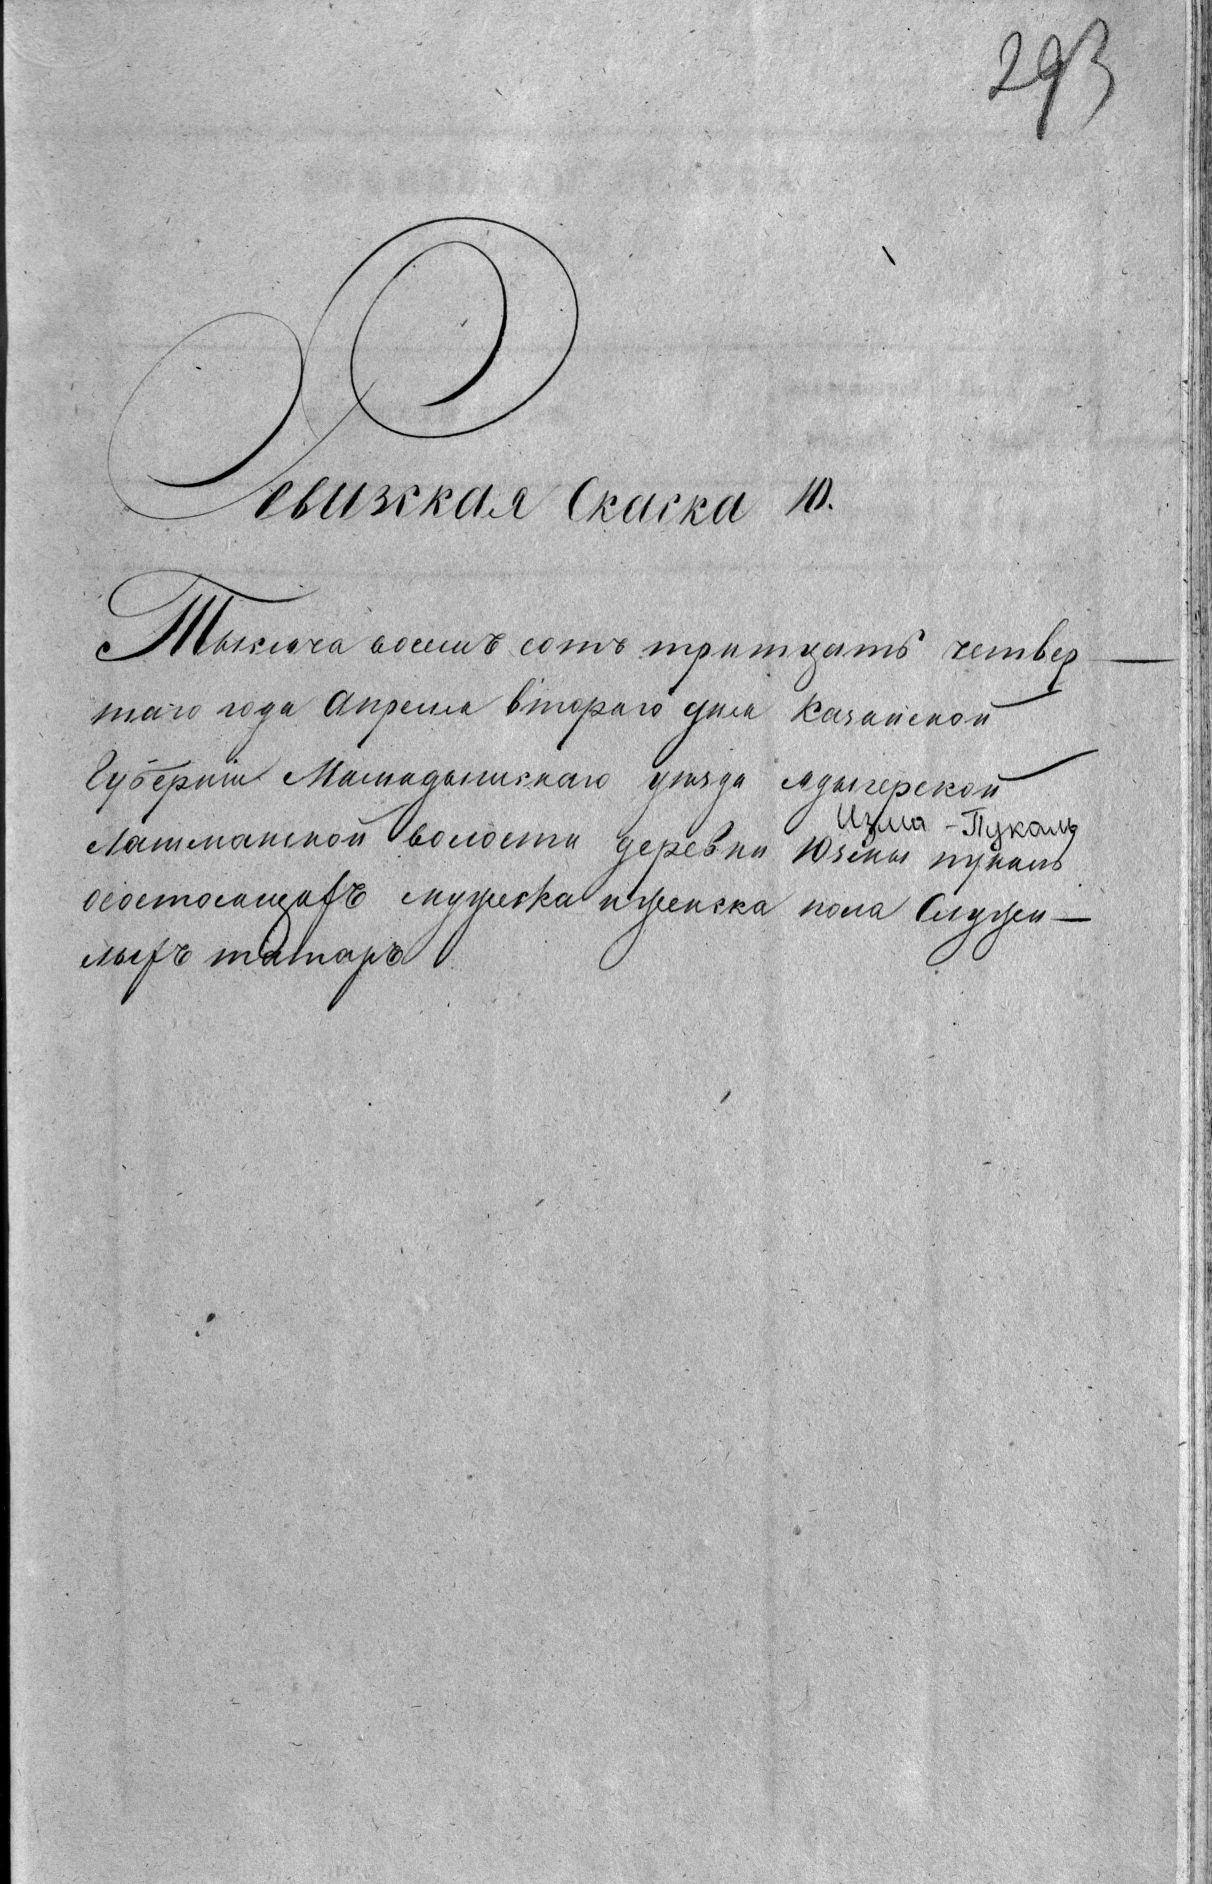 293
Ревизская Скаска 10.
Тысяча восемъ сотъ тритцать четвер
таго года апреля втораго дня Казанской
Губерніи Мамадышскаго уезда Адыгерской
Лашманской волости деревни Юзмы пукаль
Изма - Пукаль
осостоящихъ мужеска иженска пола Служи
лыхъ татаръ